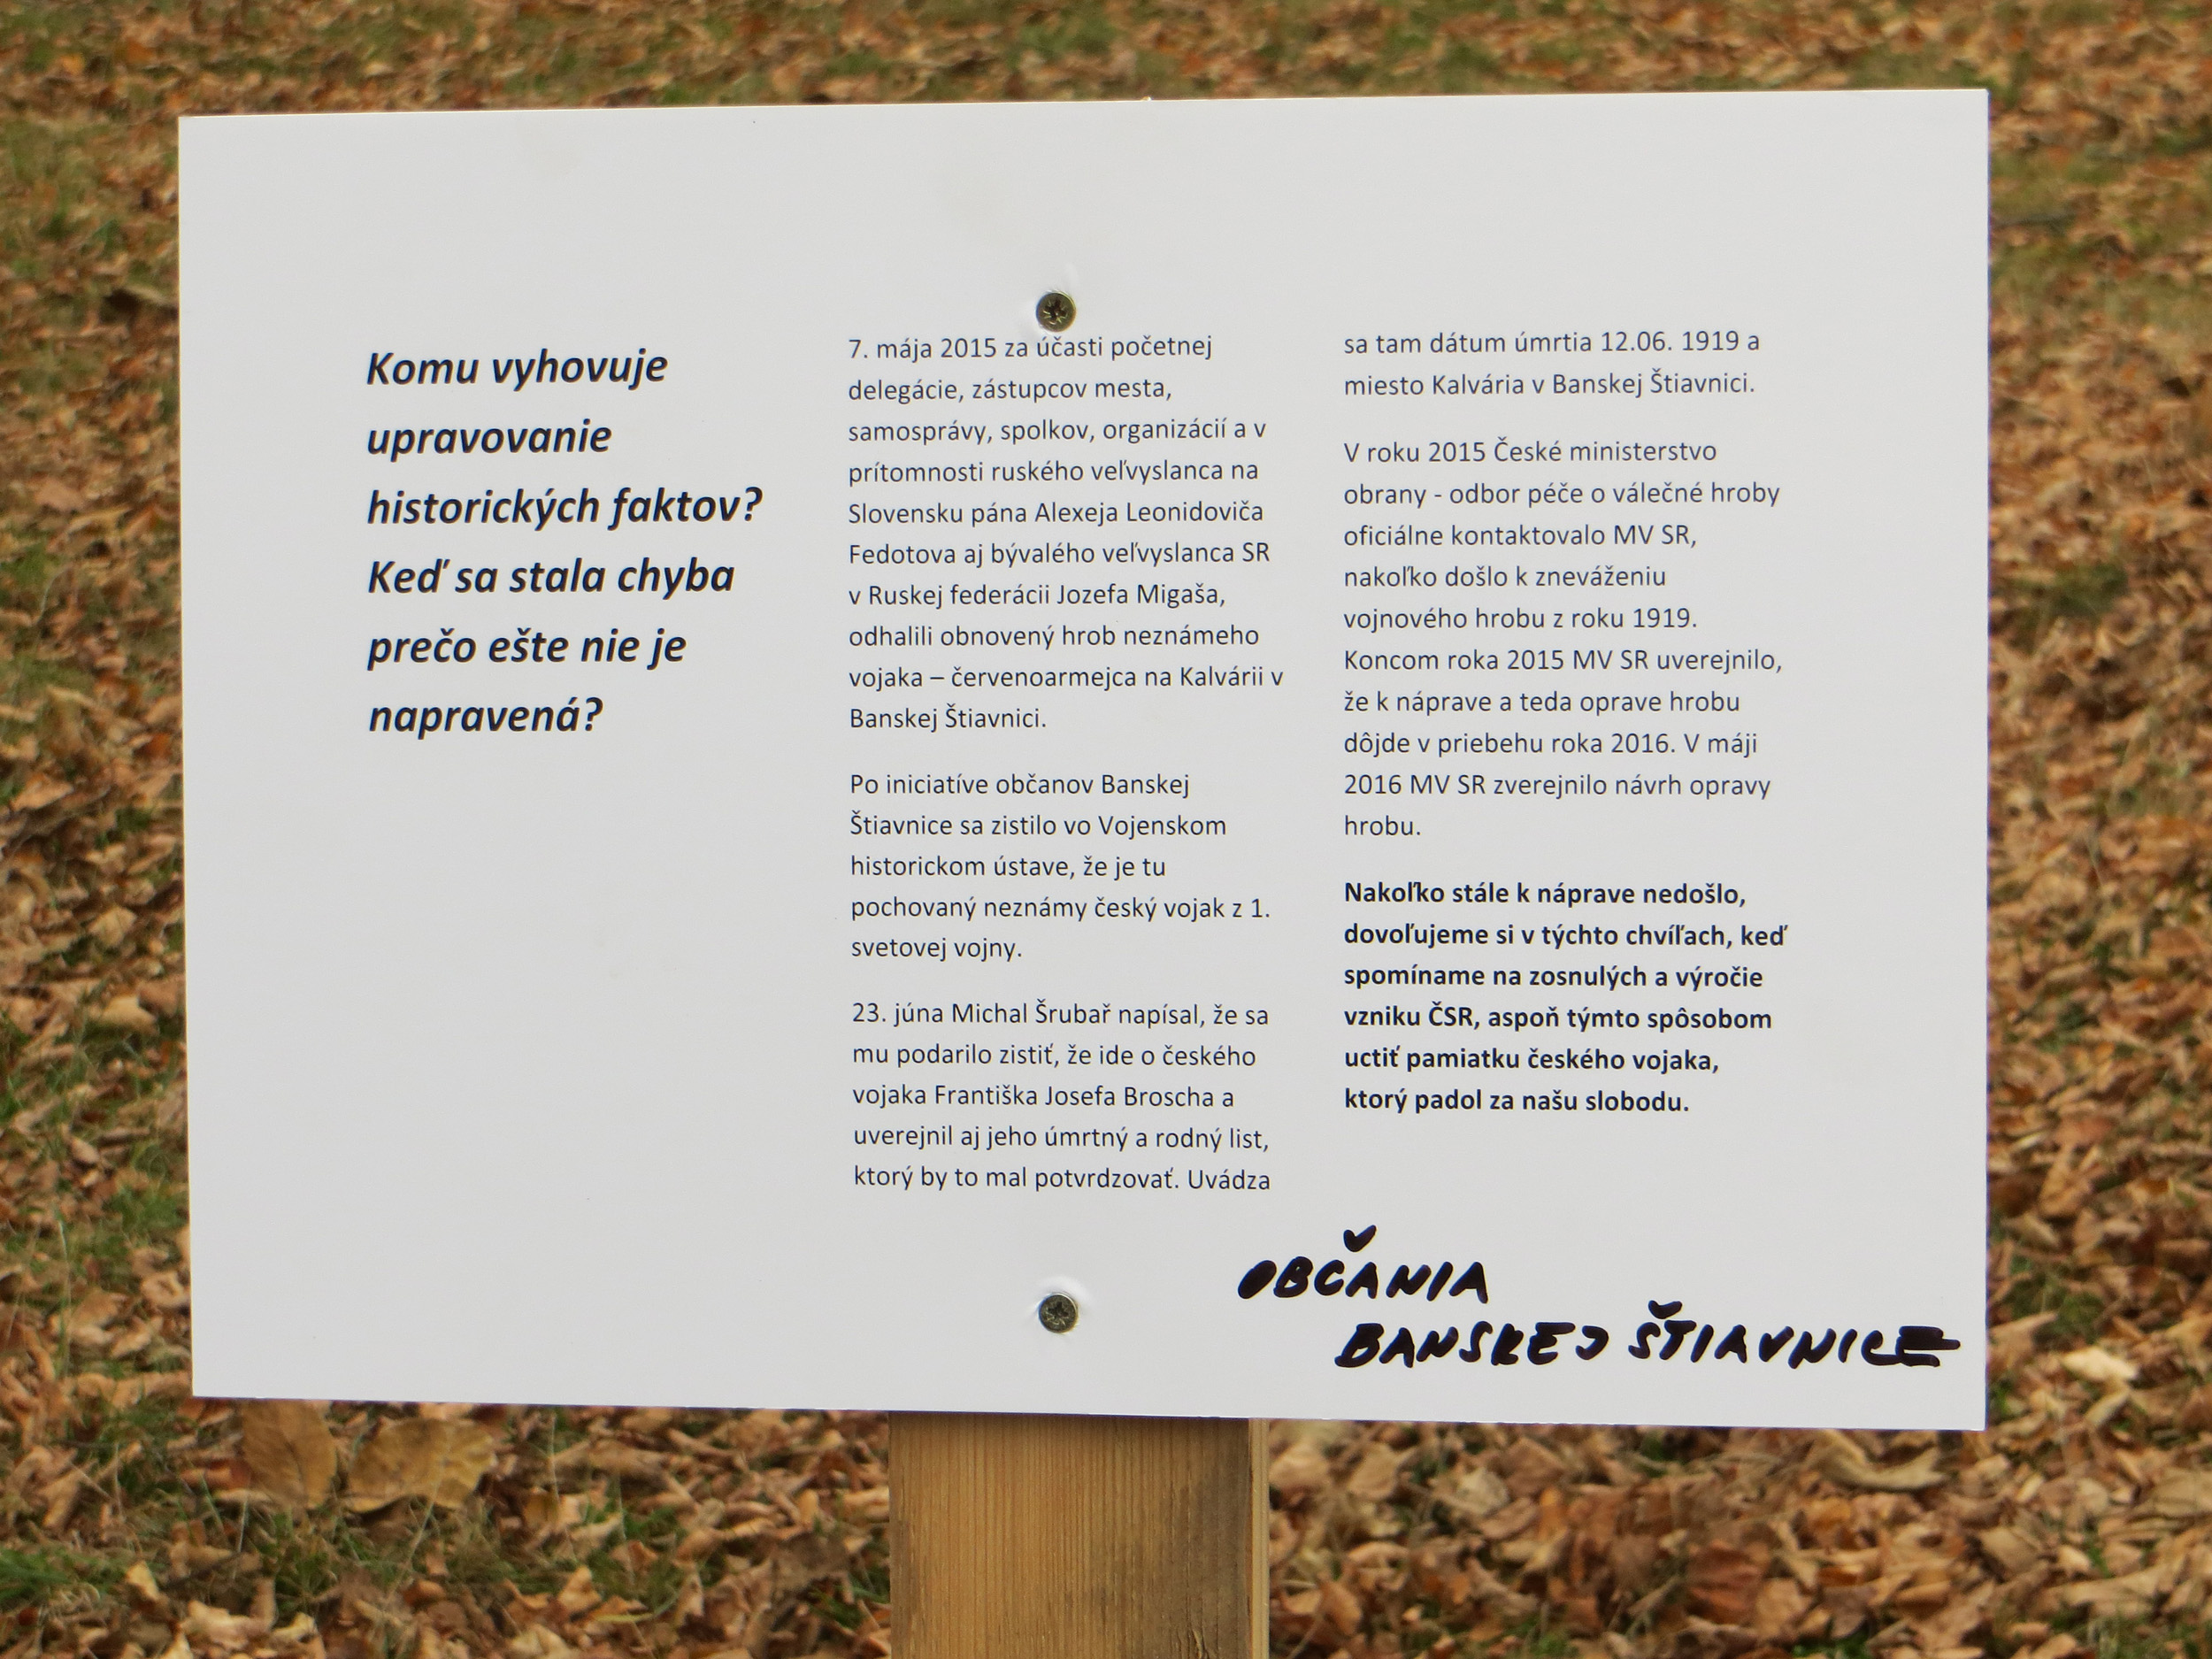 Komu vyhovuje
upravovanie
historických faktov?
Keď sa stala chyba
prečo ešte nie je
napravená?
7. mája 2015 za účasti početnej
delegácie, zástupcov mesta,
samosprávy, spolkov, organizácií a v
prítomnosti ruského veľvyslanca na
Slovensku pána Alexeja Leonidoviča
Fedotova aj bývalého veľvyslanca SR
v Ruskej federácii Jozefa Migaša,
odhalili obnovený hrob neznámeho
vojaka – červenoarmejca na Kalvárii v
Banskej Štiavnici.
Po iniciatíve občanov Banskej
Štiavnice sa zistilo vo Vojenskom
historickom ústave, že je tu
pochovaný neznámy český vojak z 1.
svetovej vojny.
23. júna Michal Šrubař napísal, že sa
mu podarilo zistiť, že ide o českého
vojaka Františka Josefa Broscha a
uverejnil aj jeho úmrtný a rodný list,
ktorý by to mal potvrdzovať. Uvádza
sa tam dátum úmrtia 12.06. 1919 a
miesto Kalvária v Banskej Štiavnici.
V roku 2015 České ministerstvo
obrany - odbor péče o válečné hroby
oficiálne kontaktovalo MV SR,
nakoľko došlo k zneváženiu
vojnového hrobu z roku 1919.
Koncom roka 2015 MV SR uverejnilo,
že k náprave a teda oprave hrobu
dôjde v priebehu roka 2016. V máji
2016 MV SR zverejnilo návrh opravy
hrobu.
Nakoľko stále k náprave nedošlo,
dovoľujeme si v týchto chvíľach, keď
spomíname na zosnulých a výročie
vzniku ČSR, aspoň týmto spôsobom
uctiť pamiatku českého vojaka,
ktorý padol za našu slobodu.
OBČANIA
BANSKEJ ŠTIAVNICE